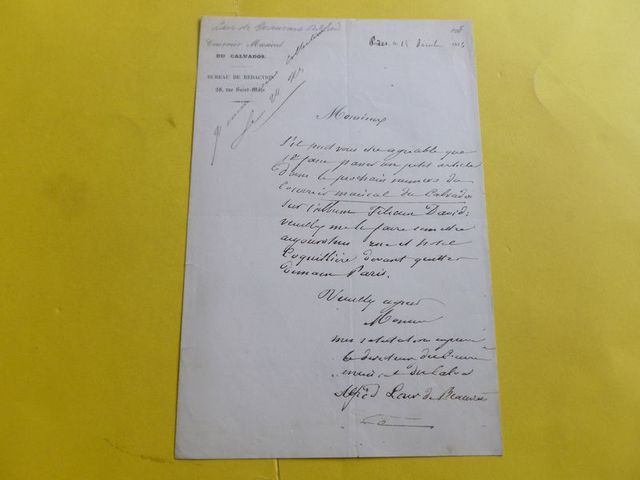 Lair de Beauvais Alfred
Courrier Musical
DU CALVADOS.
BUREAU DE RÉDACTION
Monsieur
S'il peut vous être agréable que
je fasse passer un petit article
dans le prochain numéro du
Courrier musical du Calvados
sur l'album Félicien David,
veuillez me le faire remettre
aujourd'hui rue et hôtel
Coquillière devant quitter
demain Paris.
Veuillez agréer
Monsieur
mes salutations
le directeur du Courrier
musical du Calvados
Alfred Lair de Beauvais